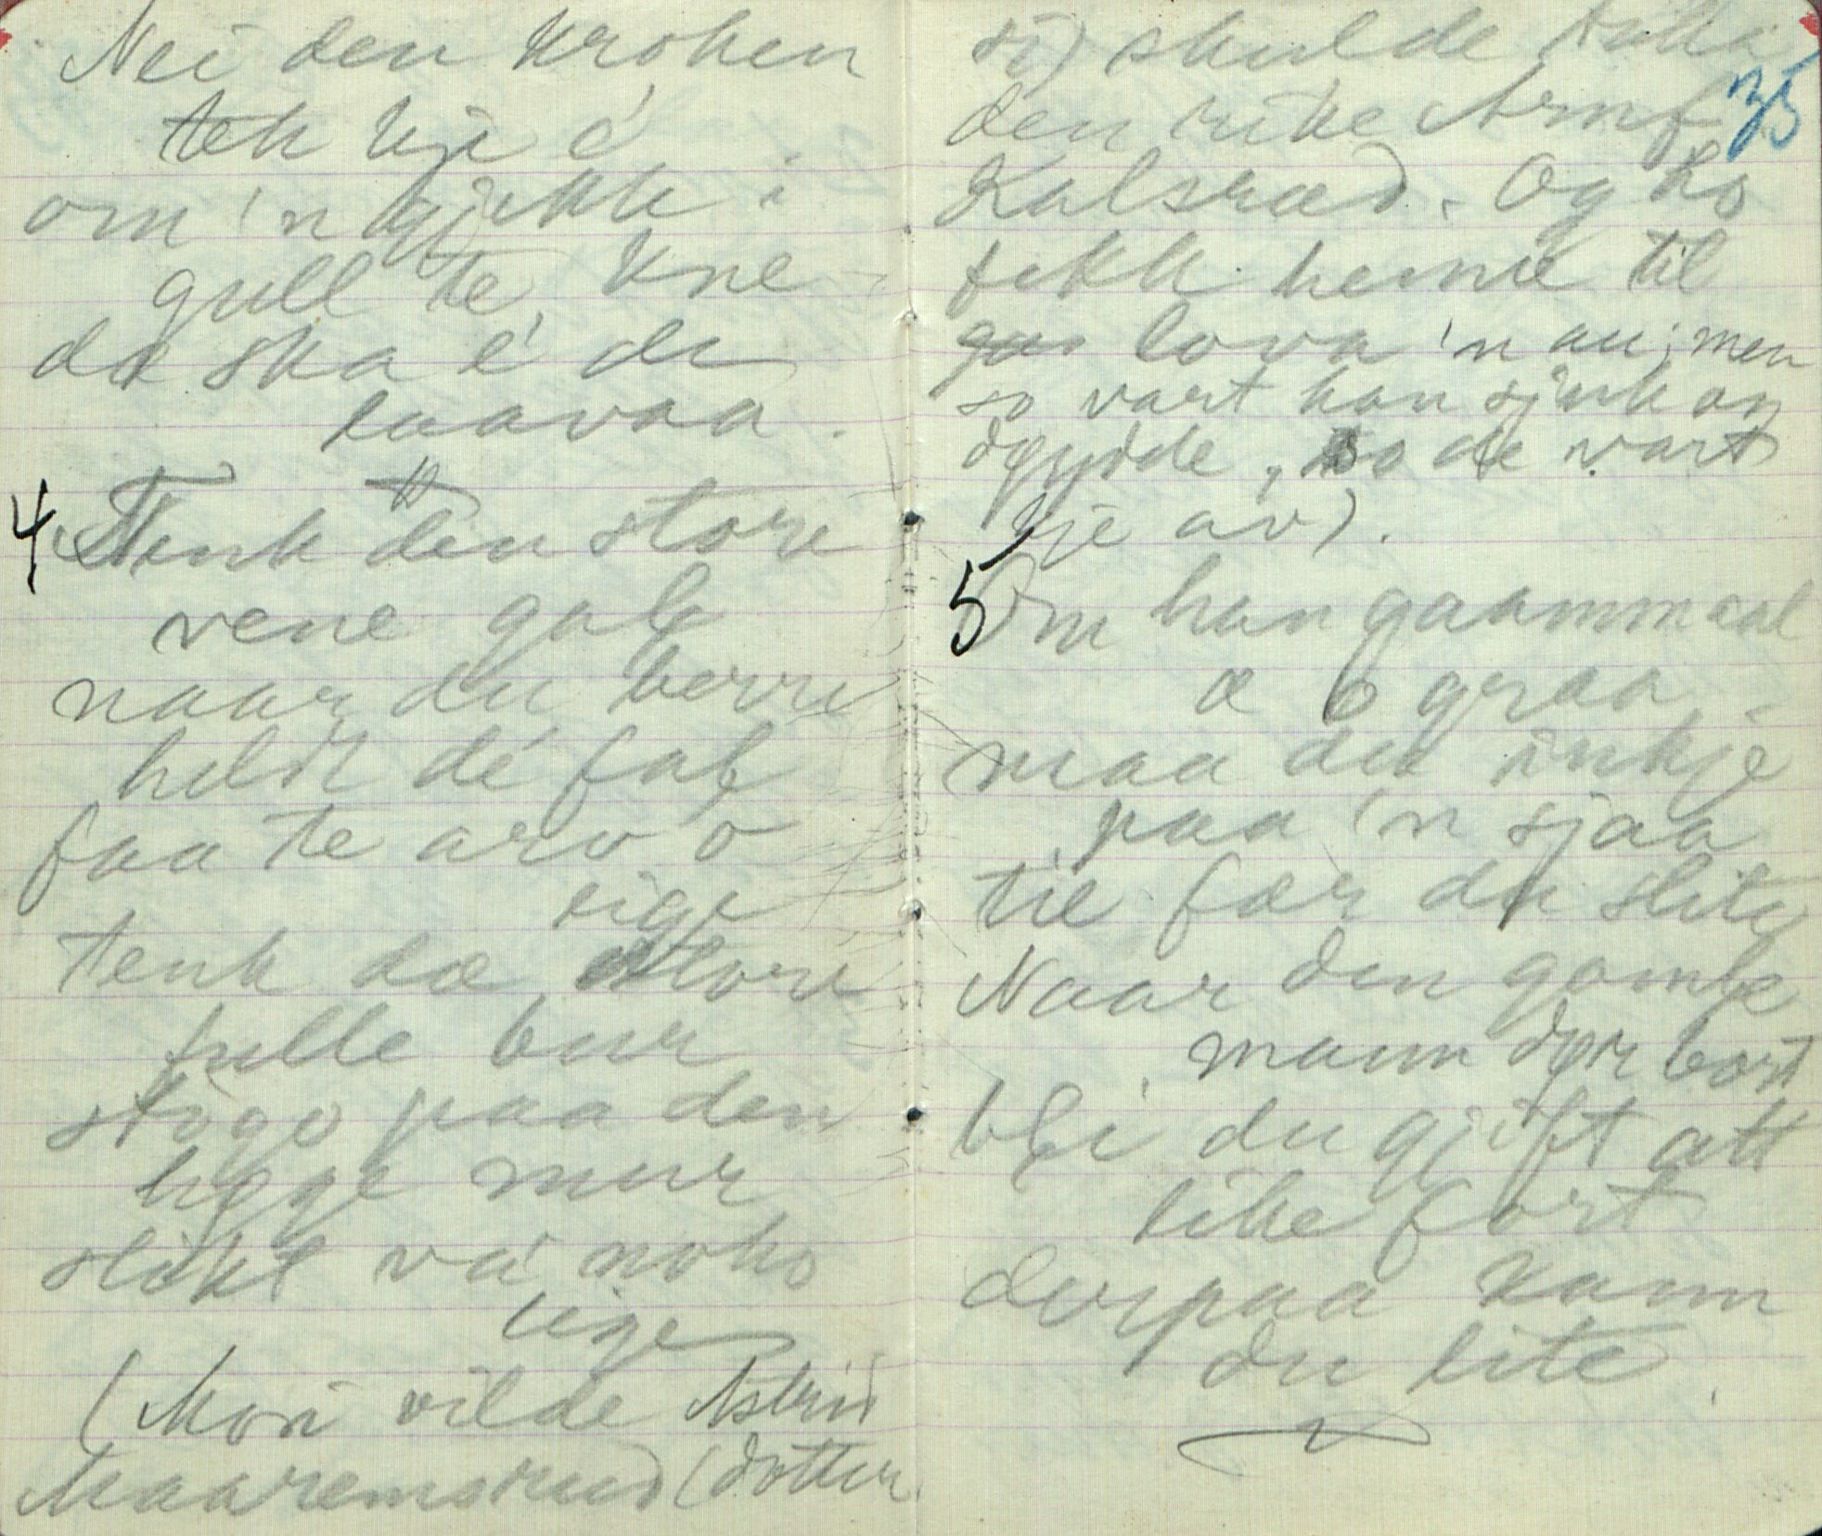 Nei den kroken
tek kje e'
om 'n gjekk i
gull te kne
dæ ska e' de
laavaa.
4 Tenk den store
vene gal
naar du berre
heldt dé fal
faa te arv o
eige
tenk dæ store
fulle bur
stogo paa den
høge mur
slikt va' noko
eige
(Mori vilde Astrid
Maaremsrud (dotter
si) skulde taka
den rike Arnf
35
Kalsrud. Og ho
fekk henne til
lova 'n au; men
so vart han sjuk og
døydde, so de vart
kje av).
5 Om han gaammaal
æ o graa
maa du inkje
paa 'n sjaa
til fær du slite
Naar den gamle
mann døyr bort
bli du gjift att
like fort
derpaa kann
du lite.